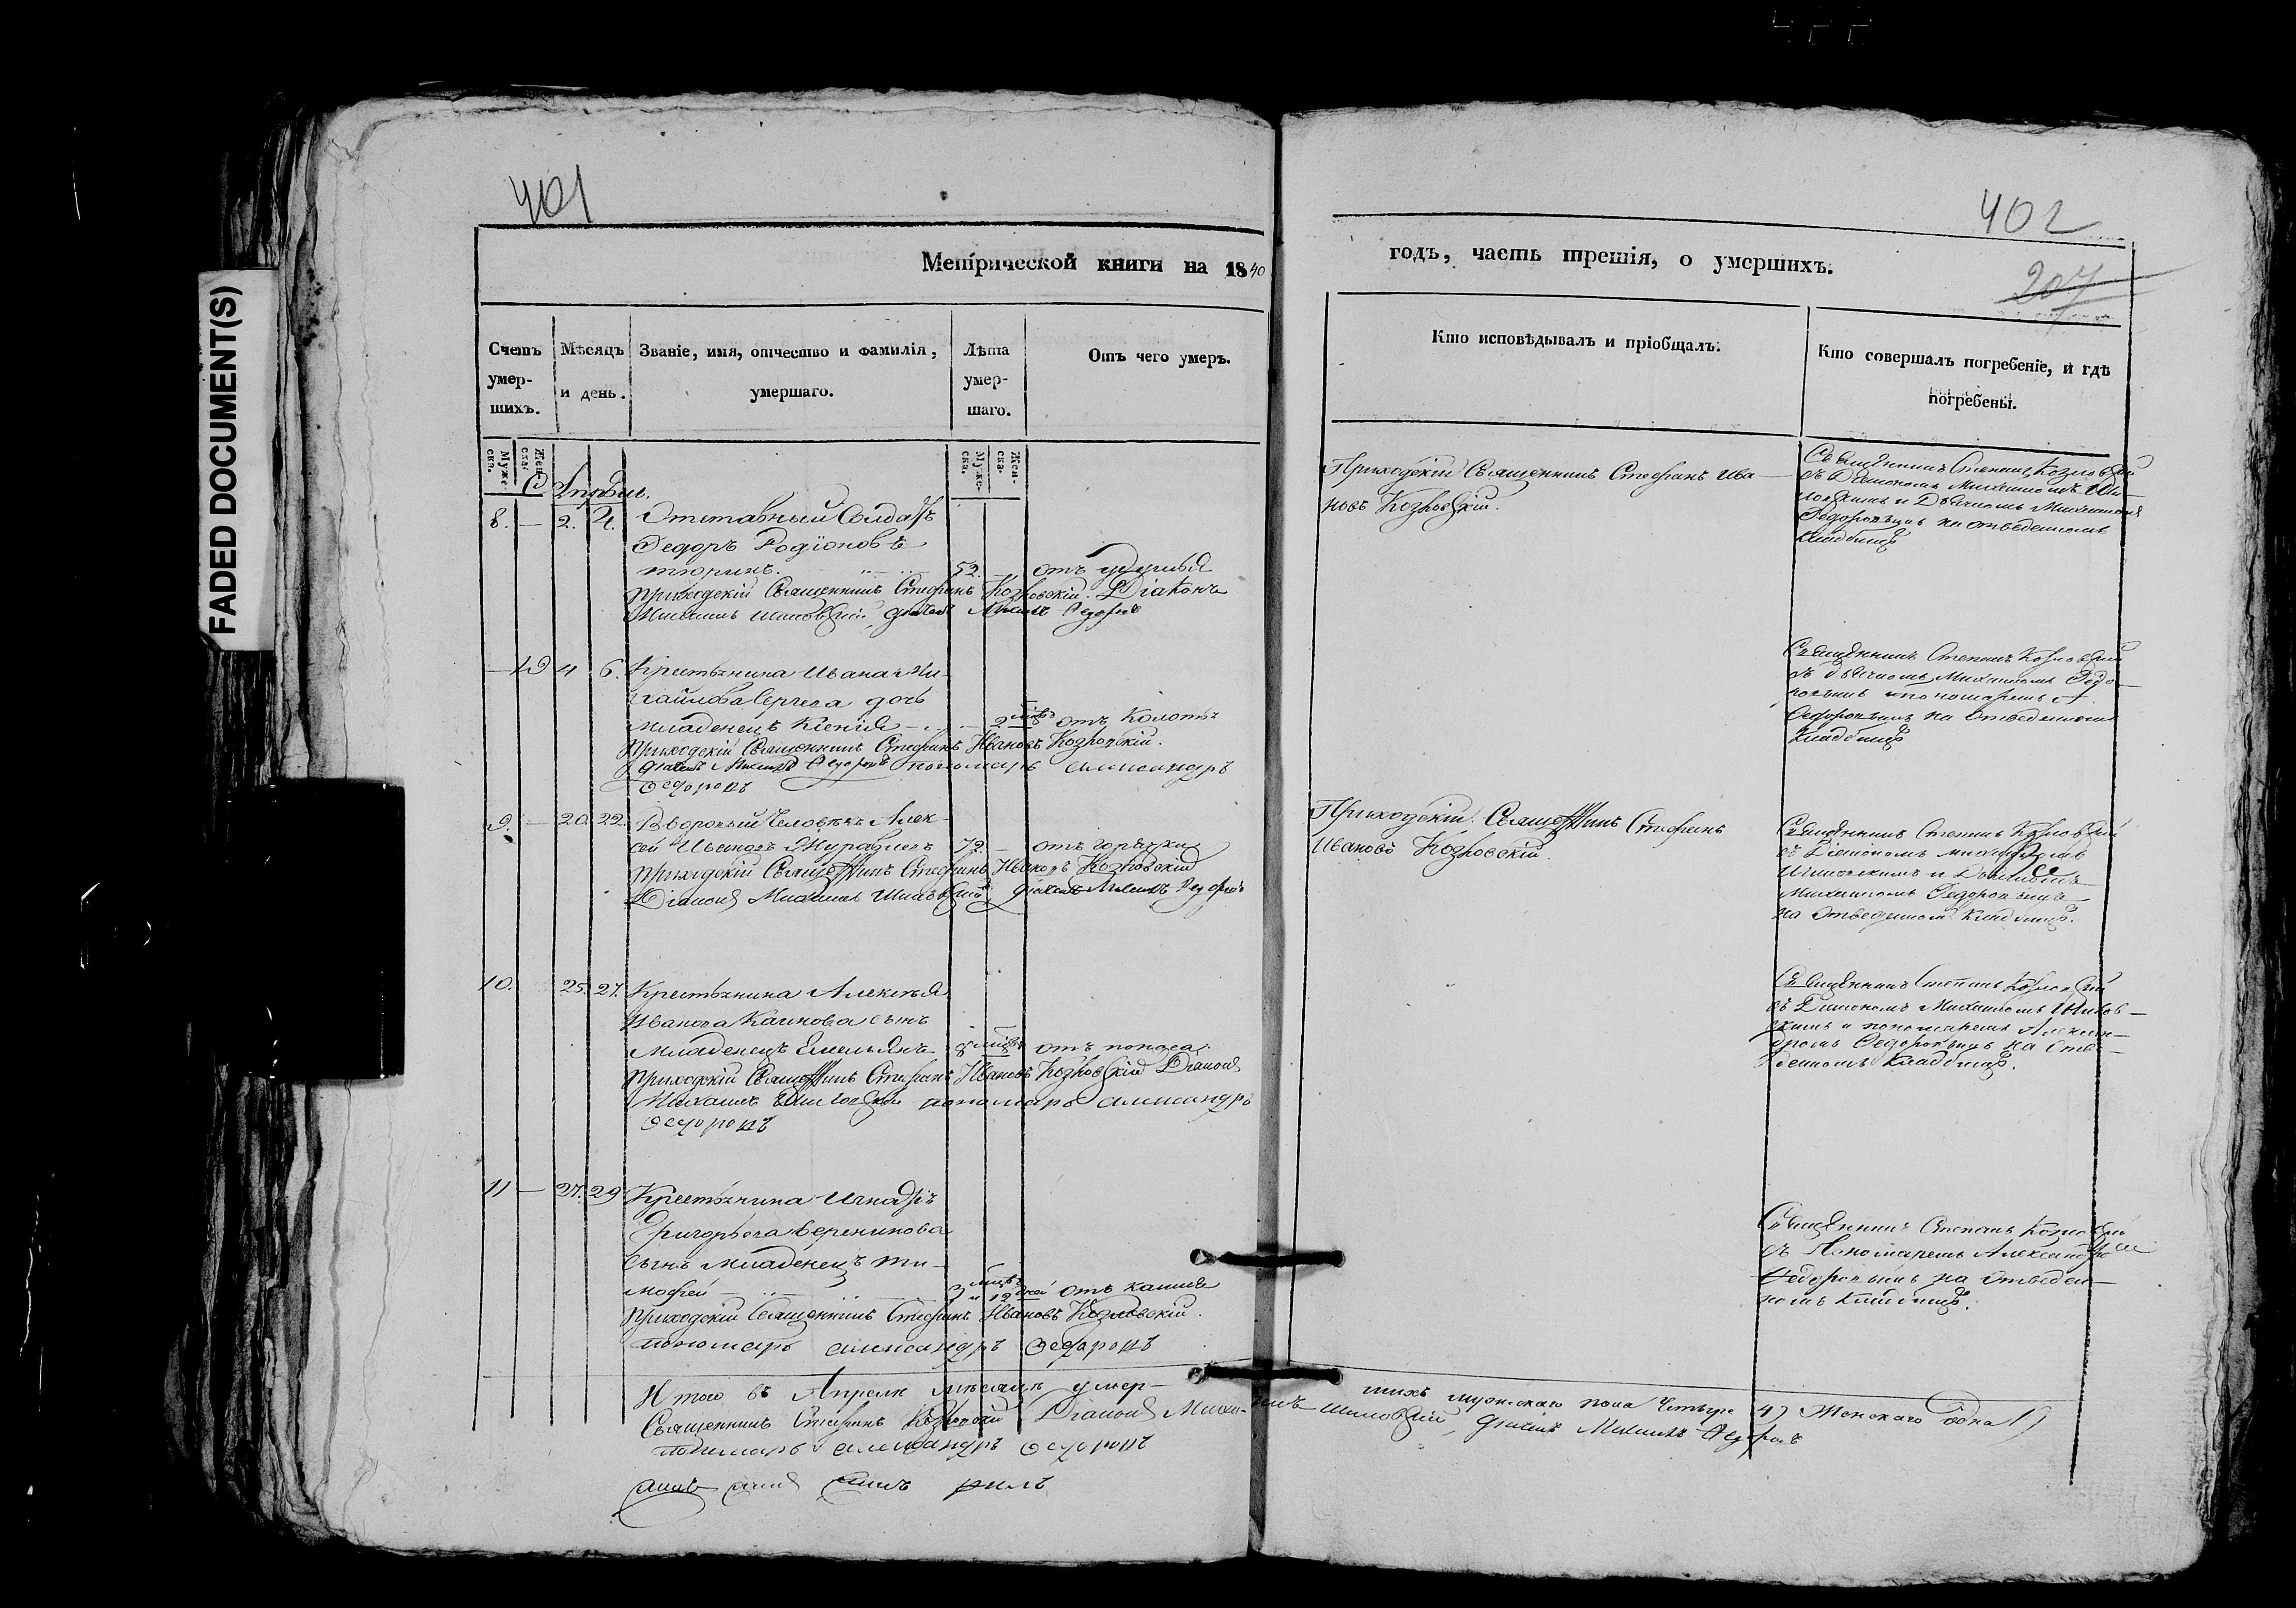 FADED DOCUMENT(S)
401
Метрической книги на 1840
Счетъ умер-шихъ.
Мѣсяцъ и день.
Званіе, имя, отчество и фамилія, умершаго.
Лѣта умер-шаго.
Отъ чего умеръ.
Муже-ска.
Жен-ска.
Муже-ска.
Жен-ска.
Апрѣль.
8. — 2. 4. Отставный Солдатъ
Федоръ Родіоновъ
тюринъ. 52. отъ удушья
Приходскій Священникъ Стефанъ Козловскій. Діаконъ
Михаилъ Шиловскій, дьячекъ Михаилъ Федоровъ
— 4 6. Крестьянина Ивана Ми-
хайлова Сергеева дочь
младенецъ Ксенія 2 мѣс. отъ Колотья
Приходскій Священникъ Стефанъ Ивановъ Козловскій.
дьячекъ Михаилъ Федоровъ пономарь александръ
Федоровъ
9. — 20. 22. Дворовый Человѣкъ Алек-
сей Ивановъ Журавлевъ 72. — отъ горячки
Приходскій Священникъ Стефанъ Ивановъ Козловскій
Діаконъ Михаилъ Шиловскій, дьячекъ Михаилъ Федоровъ
10. 25. 27. Крестьянина Алексѣя
Иванова Каинова сынъ
Младенецъ Емельянъ 8 мѣс. отъ поноса.
Приходскій Священникъ Стефанъ Ивановъ Козловскій Діаконъ
Михаилъ Шиловскій пономарь александръ
Федоровъ
11 — 27. 29 Крестьянина Игнатія
Григорьева Веренинова
сынъ младенецъ ти-
мофей 3 мѣс. и 12 дней отъ кашля
Приходскій Священникъ Стефанъ Ивановъ Козловскій.
пономарь александръ Федоровъ
Итого въ Апрѣлѣ мѣсяцѣ умер-
Священникъ Стефанъ Козловскій Діаконъ Михаилъ
пономарь александръ Федоровъ
402
207
годъ, часть третія, о умершихъ.
Кто исповѣдывалъ и пріобщалъ.
Кто совершалъ погребеніе, и гдѣ погребены.
Приходскій Священникъ Стефанъ Ива-
новъ Козловскій.
Священникъ Степанъ Козловскій
съ Діакономъ Михаиломъ Ши-
ловскимъ и Дьячкомъ Михаиломъ
Федоровымъ на отведенномъ
кладбищѣ
Священникъ Степанъ Козловскій
съ дьячкомъ Михаиломъ Федо-
ровымъ и пономаремъ А.
Федоровымъ на отведенномъ
Кладбищѣ
Приходскій Священникъ Стефанъ
Ивановъ Козловскій.
Священникъ Степанъ Козловскій
съ Діакономъ михаиломъ
Шиловскимъ и Дьячкомъ
Михаиломъ Федоровымъ
на отведенномъ кладбищѣ.
Священникъ Степанъ Козловскій
съ Діакономъ Михаиломъ Шилов-
скимъ и пономаремъ Алексан-
дромъ Федоровымъ на отве-
денномъ кладбищѣ.
Священникъ Степанъ Козловскій
съ Пономаремъ Александромъ
Федоровымъ на отведен-
номъ кладбищѣ.
шихъ мужескаго пола Четыре 4) Женскаго Одна 1)
шиловскій, дьячекъ Михаилъ Федоровъ